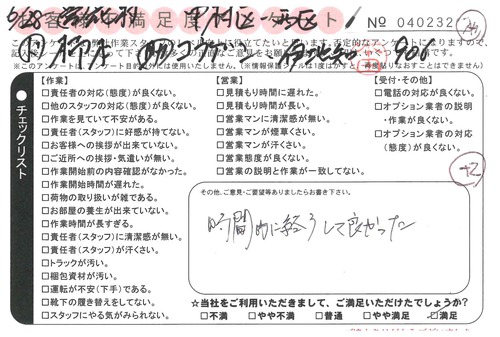 お客様満足度アンケート!
№ 040232
※このアンケートは
【作業】
□責任者の対応(態度)が良くない。
□他のスタッフの対応(態度)が良くない。
□作業を見ていて不安がある。
□責任者(スタッフ)に好感が持てない。
□お客様への挨拶が出来ていない。
□ご近所への挨拶・気遣いが無い。
□作業開始前の内容確認がなかった。
□作業開始時間が遅れた。
□荷物の取り扱いが雑である。
□お部屋の養生が出来ていない。
□作業時間が長すぎる。
□責任者(スタッフ)に清潔感が無い。
□責任者(スタッフ)が汗くさい。
□トラックが汚い。
□梱包資材が汚い。
□運転が不安(下手)である。
□靴下の履き替えをしてない。
□スタッフにやる気がみられない。
【営業】
□見積もり時間に遅れた。
□見積もり時間が長い。
□営業マンに清潔感が無い。
□営業マンが煙草くさい。
□営業マンが汗くさい。
□営業態度が良くない。
□営業の説明と作業が異なった。
【受付・その他】
□電話の対応が良くない。
□オプション業者の説明
・作業が良くない。
□オプション業者の対応
(態度)が良くない。
チェックリスト
+2
その他、ご意見・ご要望等ありましたらお書き下さい。
時間内に終了して良かった
☆当社をご利用いただきまして、ご満足いただけたでしょうか?
□不満 □やや不満 □普通 □やや満足 ☑満足